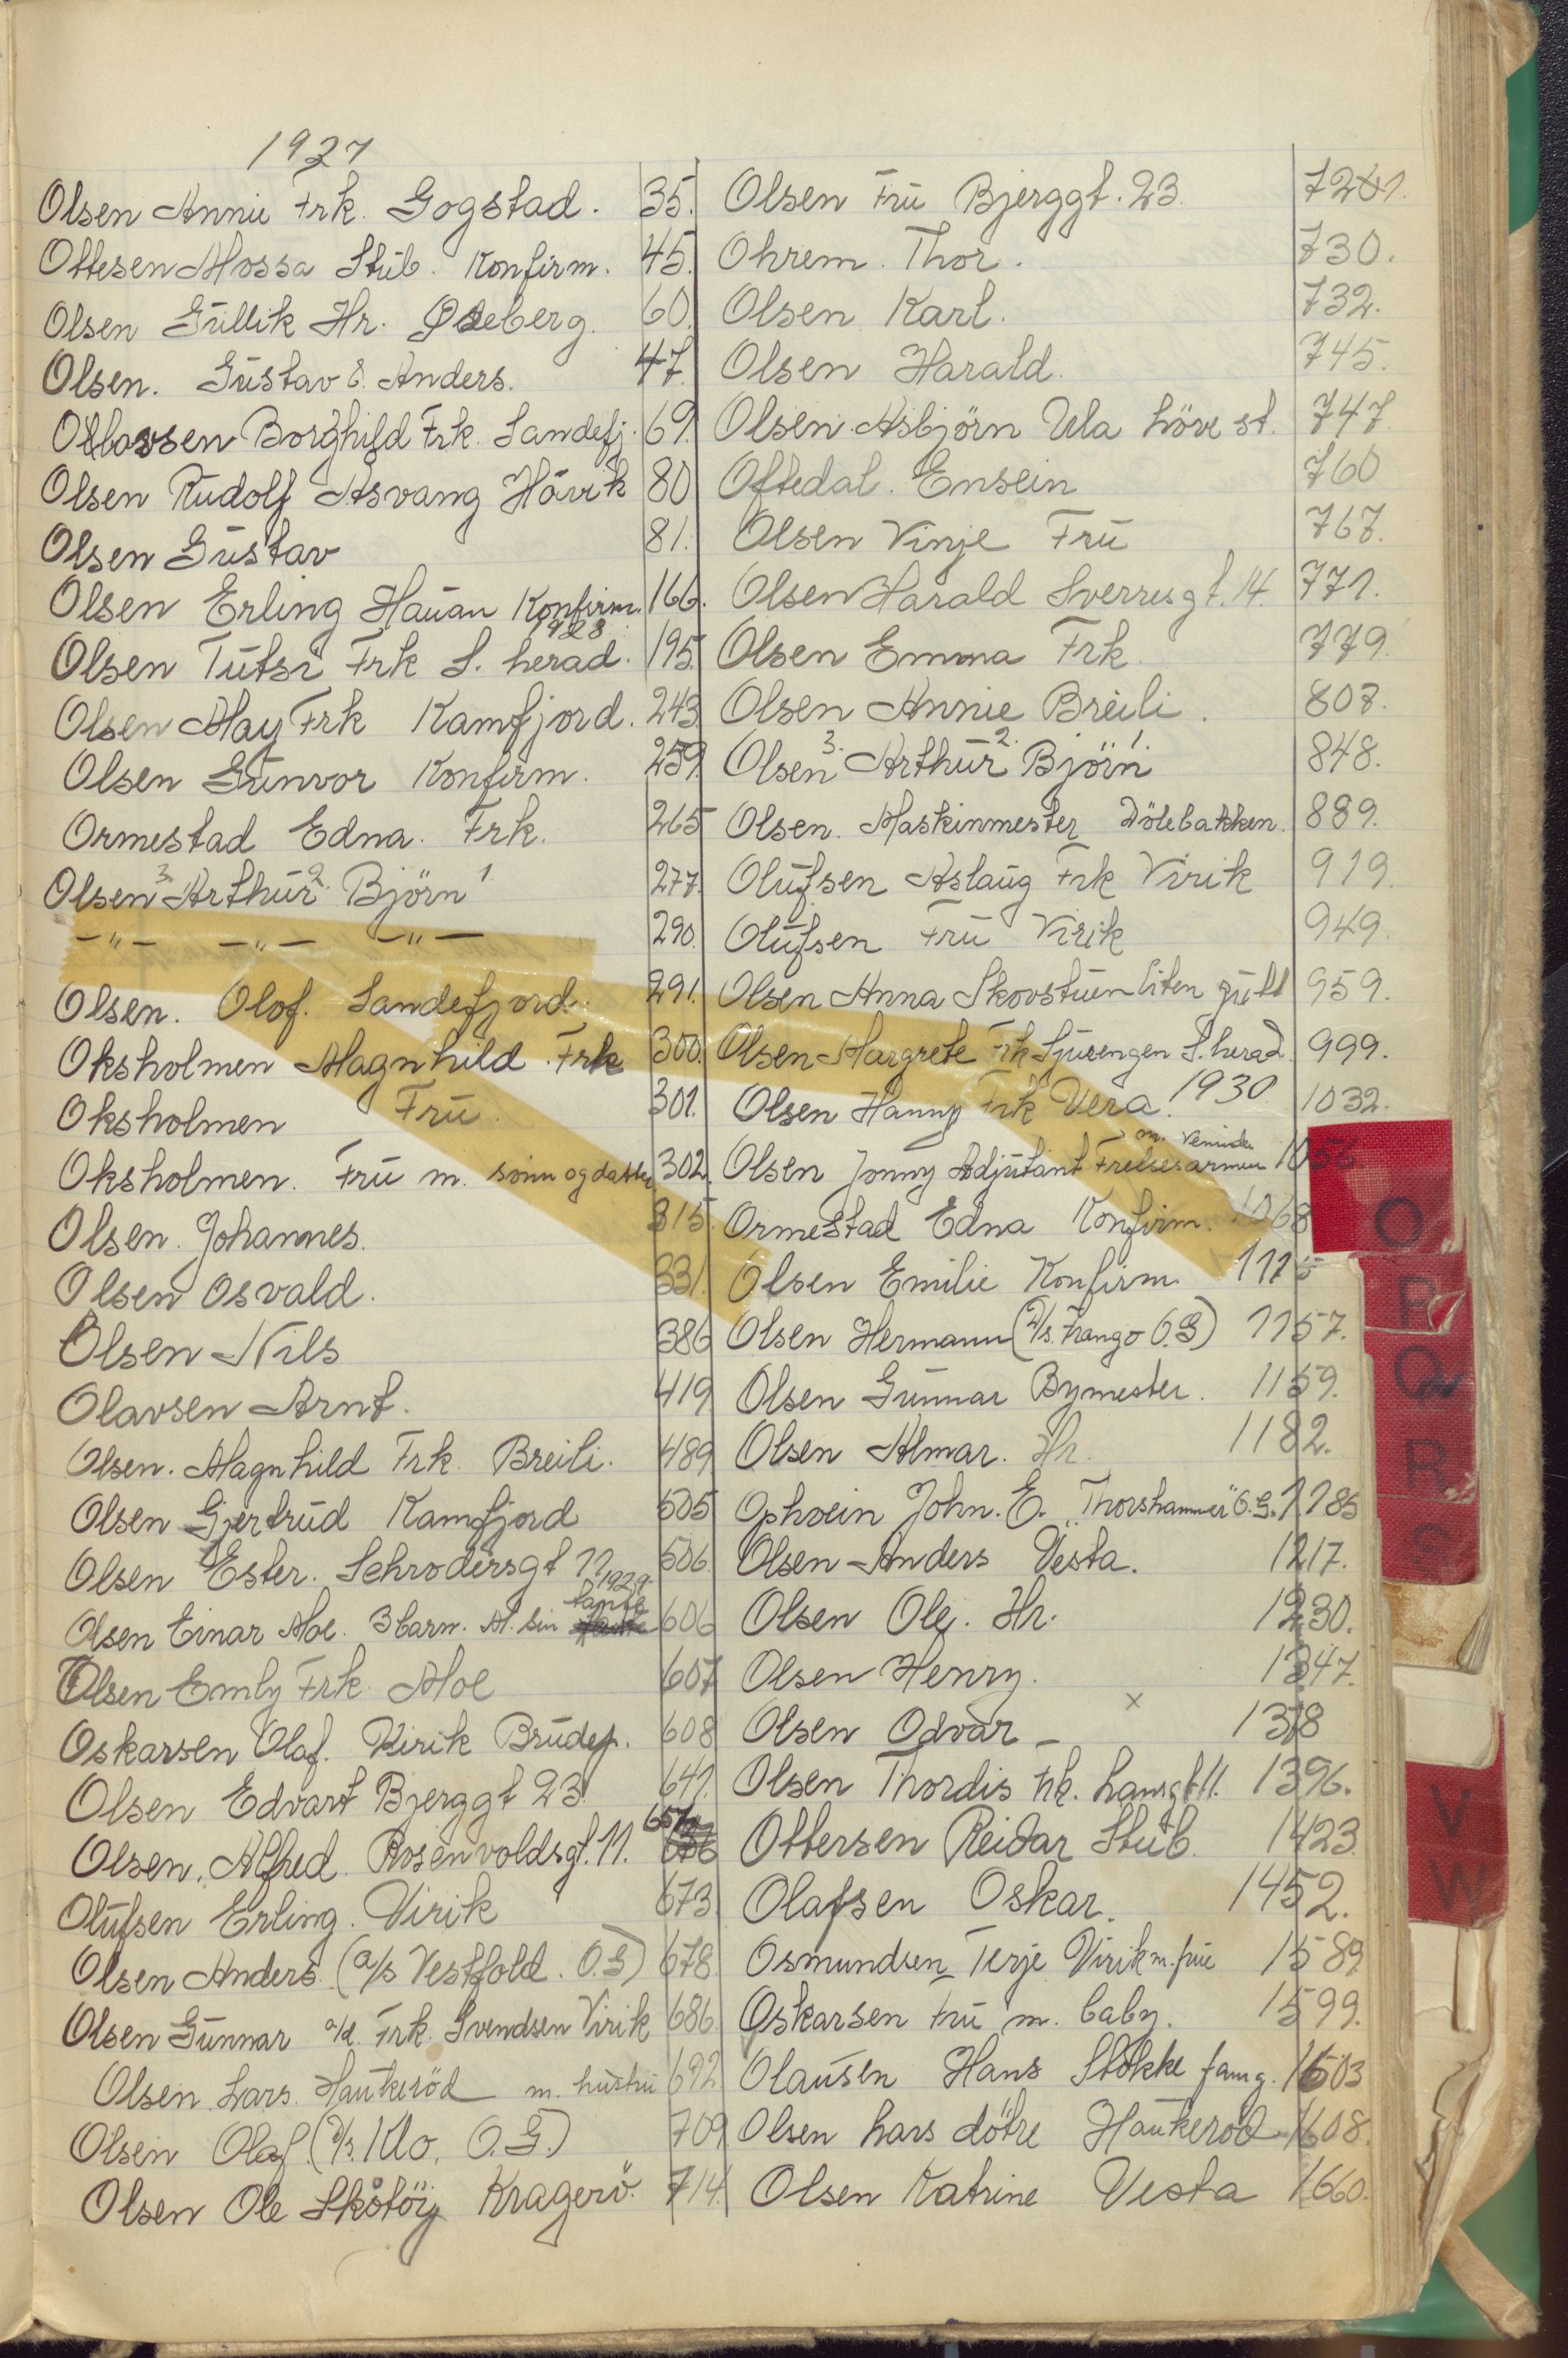 1927
Olsen Annie Frk. Gogstad. 35.
Ottesen Mossa Stub. Konfirm. 45.
Olsen Gullik Hr. Oseberg. 60.
Olsen. Gustav & Anders. 47.
Olavsen Borghild Frk. Sandefj. 69.
Olsen Rudolf Åsvang Håvik 80
Olsen Gustav 81.
Olsen Erling Hauan Konfirm. 166.
1928
Olsen Tutsi Frk S. herad. 195.
Olsen May Frk Kamfjord. 243
Olsen Gunvor Konfirm. 259.
Ormestad Edna. Frk. 265
Olsen 3. Arthur 2. Björn 1 277.
-"- -"- -"- 290.
Olsen. Olof. Sandefjord. 291.
Oksholmen Magnhild Frk 300.
Oksholmen Fru. 301.
Oksholmen. Fru m. sönn og datter 302.
Olsen. Johannes. 315.
Olsen Osvald. 331.
Olsen Nils 386
Olavsen Arnt. 419
Olsen. Magnhild Frk. Breili. 489
Olsen Gjertrud Kamfjord 505
Olsen Ester. Schrodersgt 11 506
1929
Olsen Einar Moe. 3 barn. M. sin tante 606
Olsen Emly Frk. Moe 607
Oskarsen Olaf. Virik Brudep. 608
Olsen Edvart Bjerggt 23 641.
Olsen. Alfred. Rosenvoldsgt. 11. 657
Olufsen Erling. Virik 673.
Olsen Anders (a/s Vestfold. O.G) 678.
Olsen Gunnar Frk. Svendsen Virik 686.
Olsen Lars. Haukeröd m. hustru 692
Olsen Olaf. (a/s. Klo. O.G.) 709
Olsen Ole Skåtöy Kragerö. 714.
Olsen Fru Bjerggt. 23. 721.
Ohrem. Thor. 730.
Olsen Karl. 732.
Olsen Harald. 745.
Olsen Asbjörn Ula höve st. 747.
Oftedal. Ensein 760
Olsen Vinje Fru 767.
Olsen Harald Sverresgt. 14. 771.
Olsen Emma Frk. 779.
Olsen Annie Breili. 808.
Olsen 3. Arthur 2. Björn 1. 848.
Olsen. Maskinmester Dölebakken. 889.
Olufsen Aslaug Frk Virik 919.
Olufsen Fru Virik 949.
Olsen Anna Skovstuen liten gutt 959.
Olsen Margrete Frk Sjuengen S. herad. 999.
Olsen Hanny Frk Vera. 1930 1032.
Olsen Jonny Adjutant Frelsesarmeen 1056
Ormestad Edna Konfirm. 1068
Olsen Emilie Konfirm. 1125
Olsen Hermann (a/s. Frango O.G) 1157.
Olsen Gunnar Bymester. 1159.
Olsen Almar. Hr. 1182.
Ophvein John. E. "Thorshammer" O.G. 1185
Olsen Anders Vesta. 1217.
Olsen Ole. Hr. 1230.
Olsen Henry. 1347.
Olsen Odvar - x 1378
Olsen Thordis Frk. Langgt 11. 1396.
Ottersen Reidar Stub. 1423
Olafsen Oskar. 1452.
Osmundsen Terje Virik m. frue 1589
Oskarsen Fru m. baby. 1599.
Olausen Hans Stokke famg. 1603
Olsen Lars dötre Haukeröd 1608.
Olsen Katrine Vesta 1660.
O
P
Q
R
S
V
W